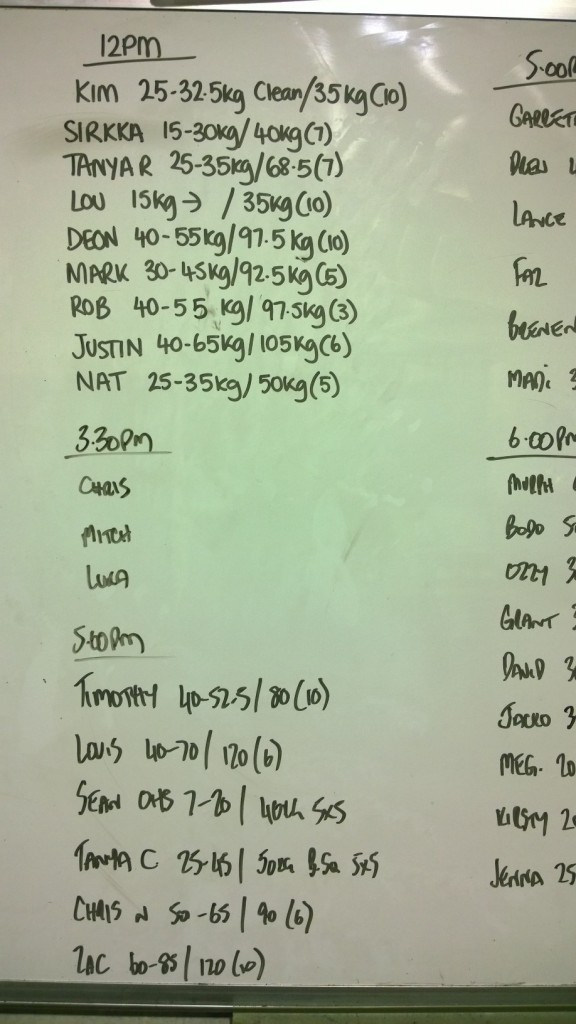 12PM
KIM 25-32.5kg Clean/35kg(10)
SIRKKA 15-30kg/40kg(7)
TANYA R 25-35kg/68.5(7)
LOU 15kg→ /35kg(10)
DEON 40-55kg/97.5kg(10)
MARK 30-45kg/92.5kg(5)
ROB 40-55 kg/97.5kg(3)
JUSTIN 40-65kg/105kg(6)
NAT 25-35kg/50kg(5)
3.30PM
CHRIS
MITCH
LUKA
5.00PM
TIMOTHY 40-52.5/80(10)
LOUIS 40-70/120(6)
SEAN OHS 7-20/40kg 5x5
TANYA C 25-45/50kg 5x5
CHRIS N 50-65/90(6)
ZAC 60-85/120(10)
5.00P
GARRET
DREW
LANCE
FAZ
BRENEN
MADI 3
6.00PM
MURPH
BODO 50
OZZY 30
GRANT 3
DAVID 30
JACKO 3
MEG. 20
KIRSTY 20
JENNA 25